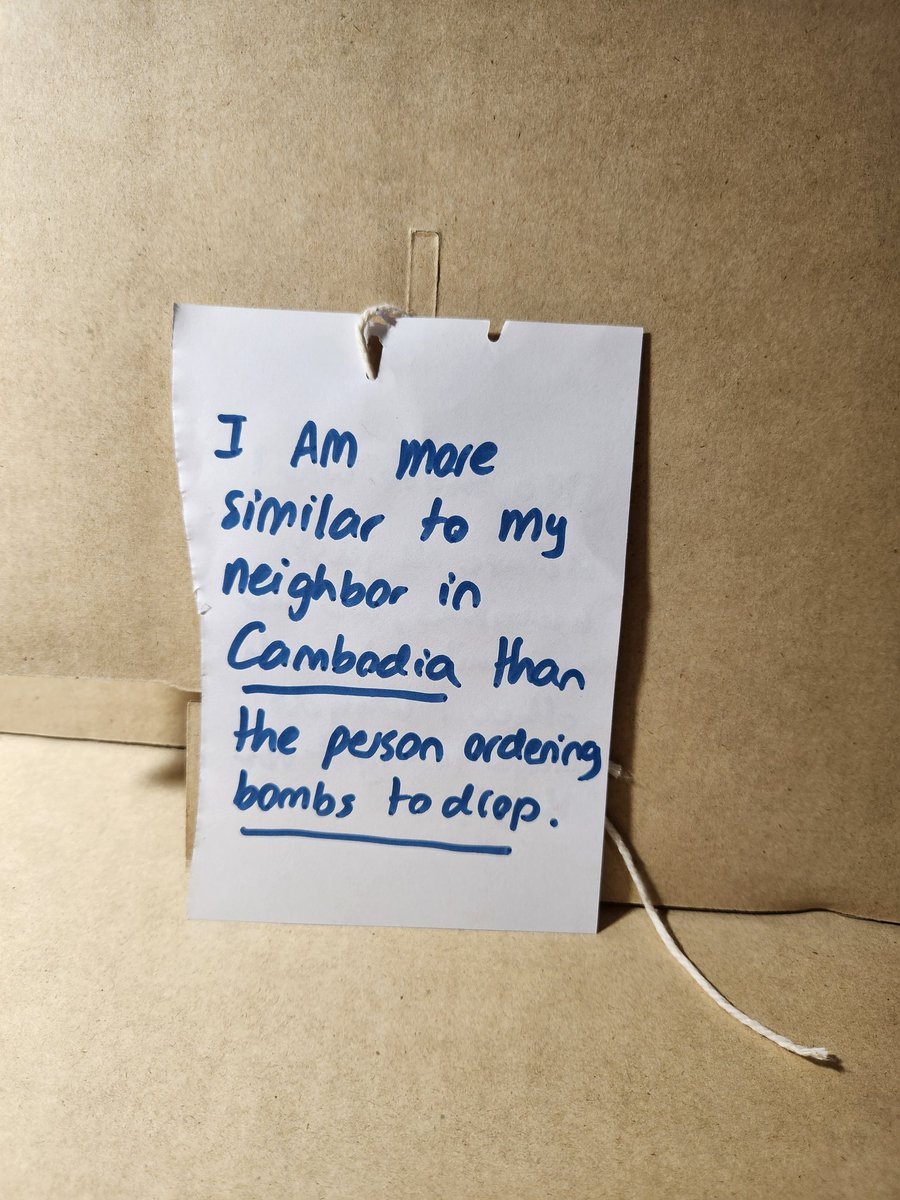 I Am more
similar to my
neighbor in
Cambodia than
the person ordering
bombs to drop.